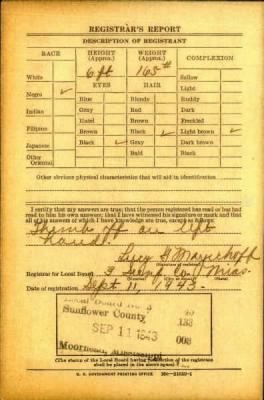 REGISTRAR'S REPORT
DESCRIPTION OF REGISTRANT
RACE HEIGHT (Approx.) WEIGHT (Approx.) COMPLEXION
6 ft 165#
White EYES HAIR Sallow
Negro ✓ Light
Blue Blonde Ruddy
Indian Gray Red Dark
Hazel Brown Freckled
Filipino Brown Black ✓ Light brown ✓
Japanese Black ✓ Gray Dark brown
Other Oriental Bald Black
Other obvious physical characteristics that will aid in identification
I certify that my answers are true; that the person registered has read or has had
read to him his own answers; that I have witnessed his signature or mark and that
all of his answers of which I have knowledge are true, except as follows:
Thumb off on left
hand.
Lucy
(Signature of registrar)
Registrar for Local Board 3 Co. Miss.
Date of registration Sept 11, 1943.
Sunflower County 133
SEP 11 1943 003
Moorhead, Mississippi
(The stamp of the Local Board having jurisdiction of the registrant
shall be placed in the above space)
U. S. GOVERNMENT PRINTING OFFICE